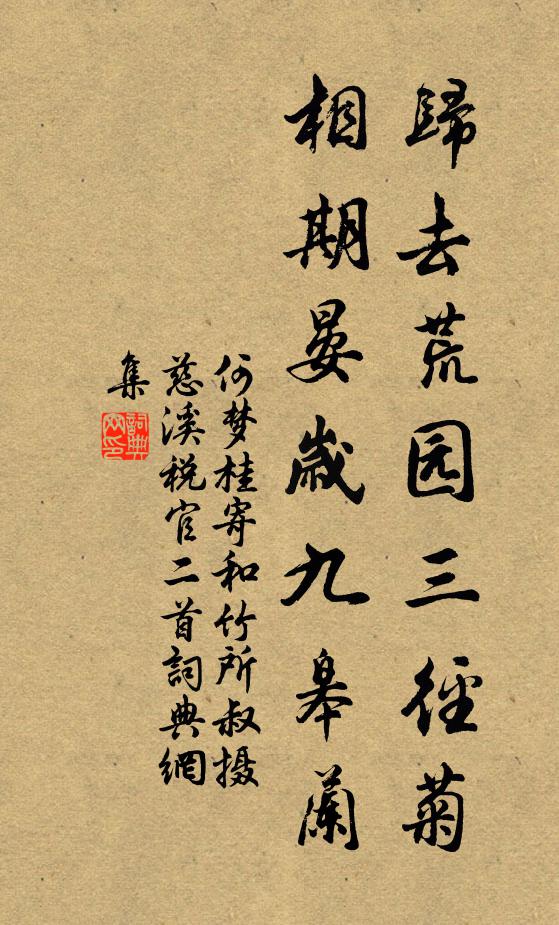 歸去荒园三徑菊
相期晏歲九皋蘭
何梦桂寄和竹所叔摄
慈溪税官二首詞典網
集
詞典
网印